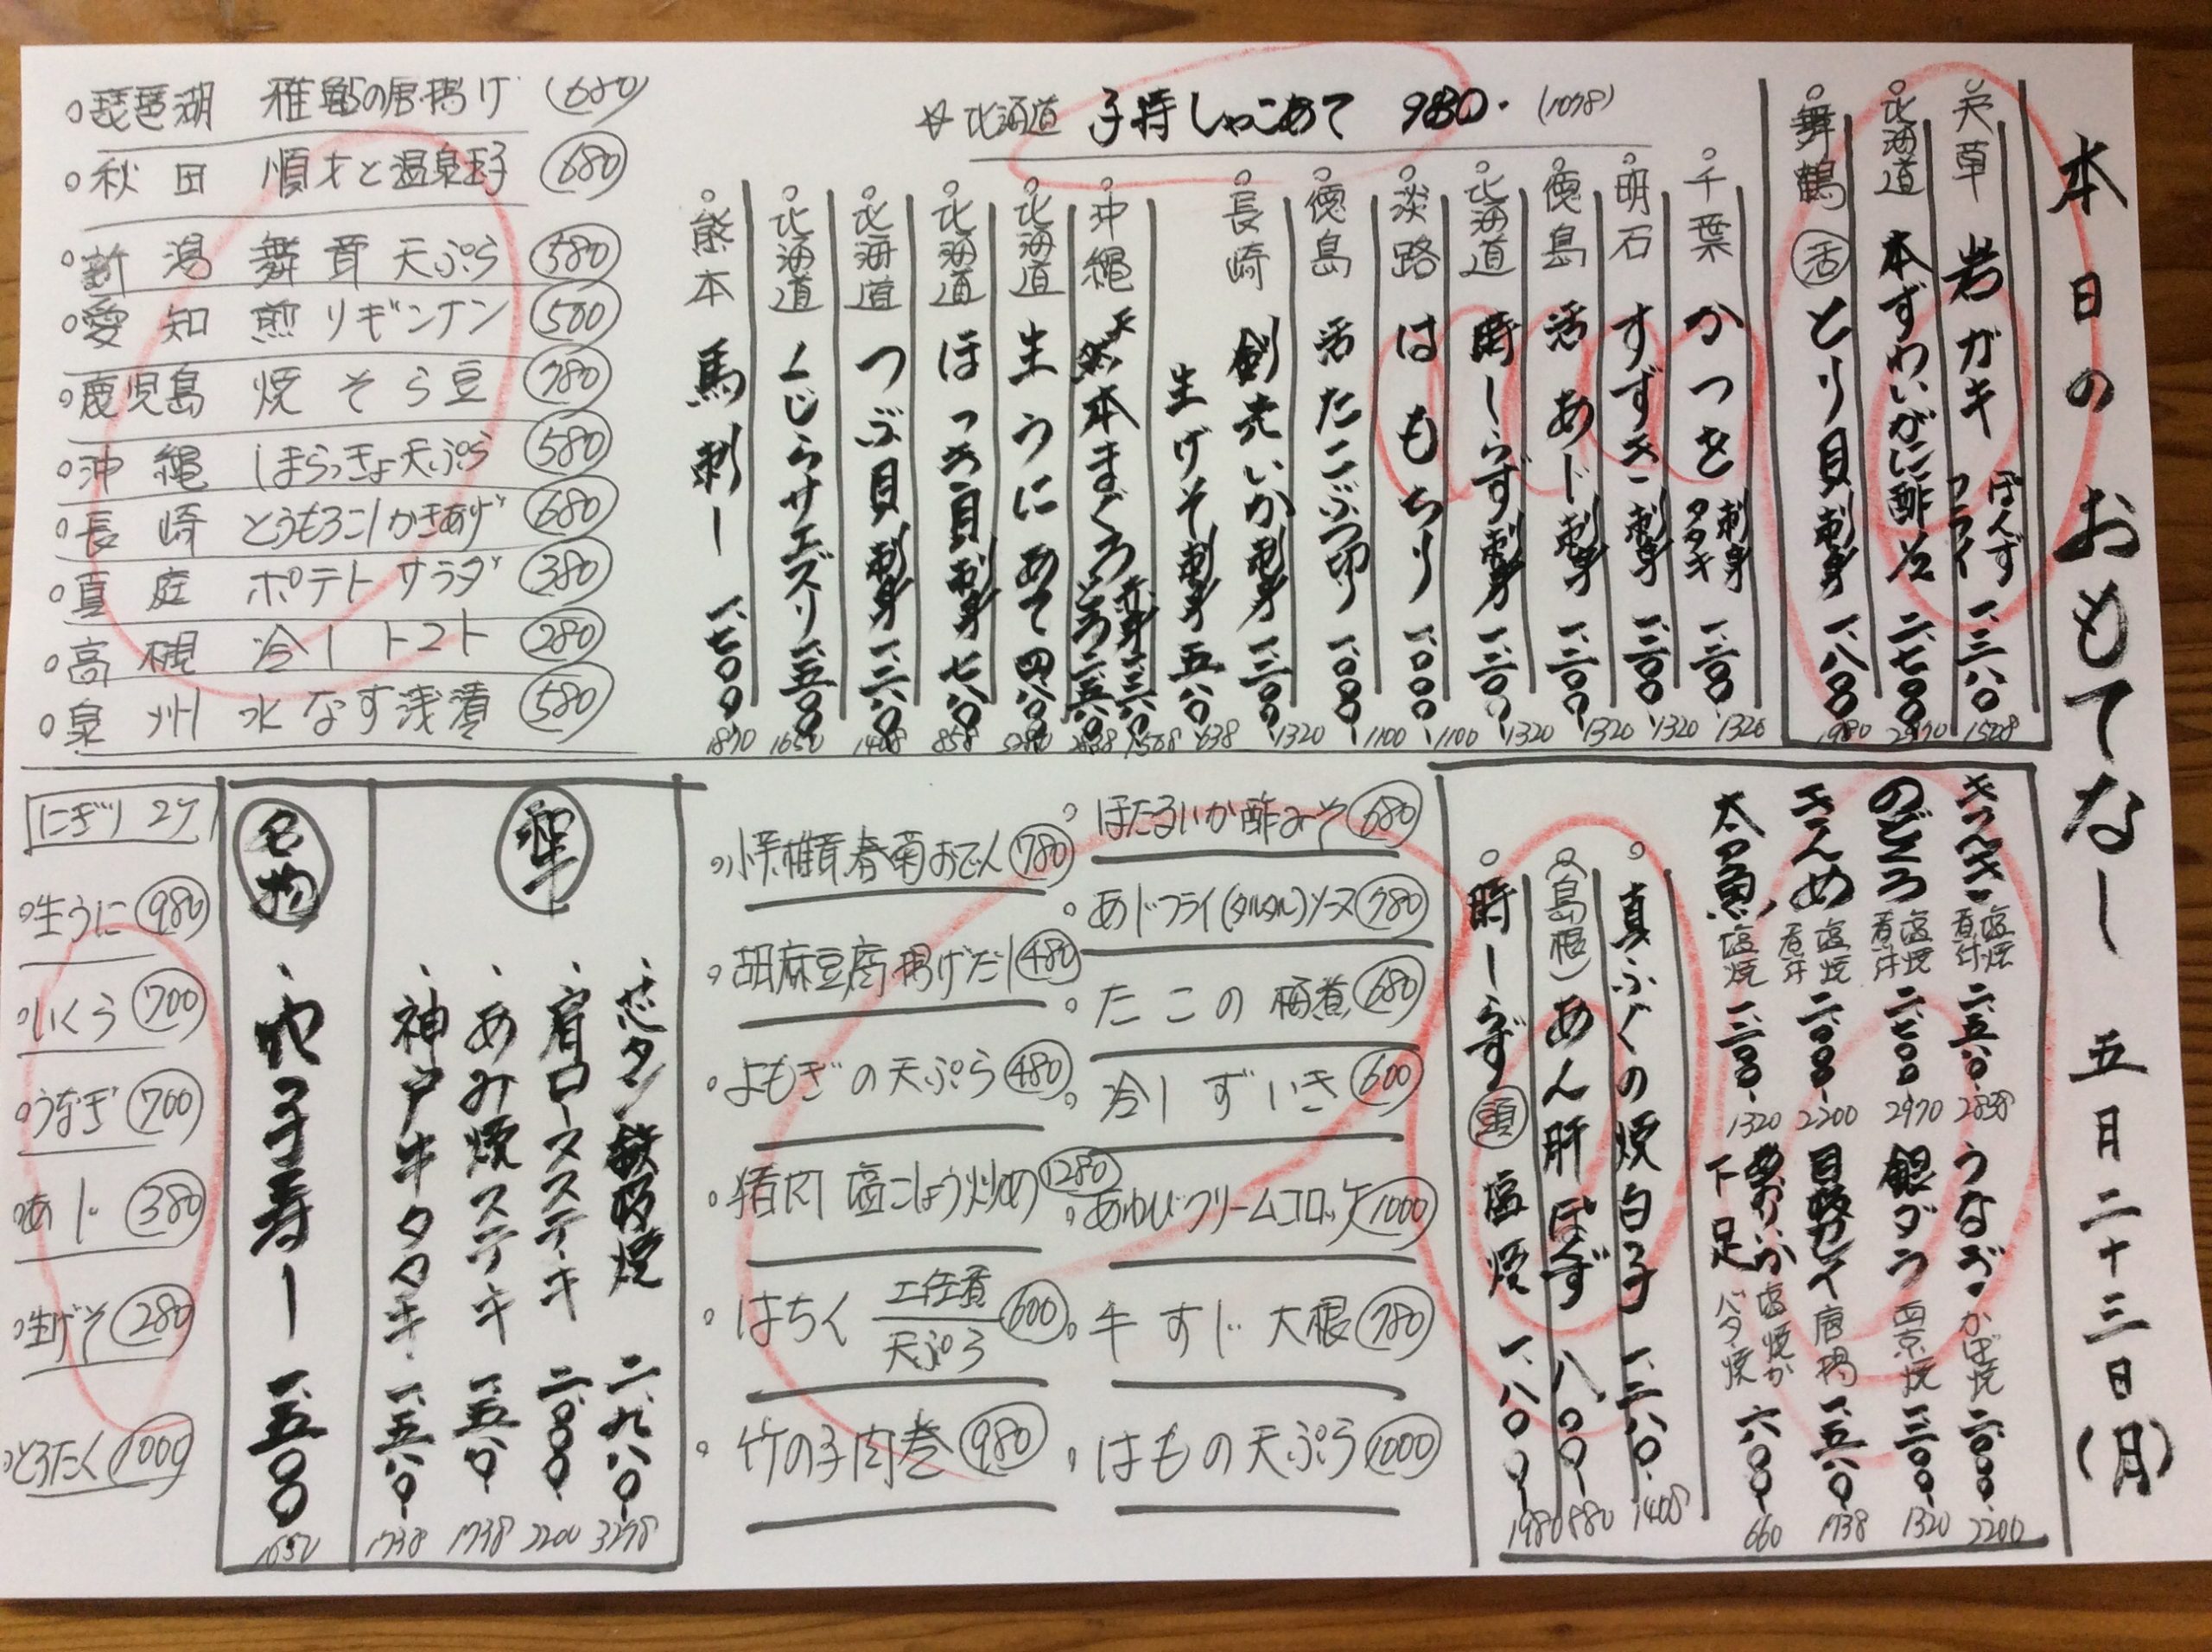 本日のおもてなし 五月二十三日(月)
天草 岩ガキ ぽんず フライ 一、三八〇 1508
北海道 本ずわいがに酢 二、七〇〇 2970
舞鶴 活 とり貝刺身 一、八〇〇 1980
☆北海道 子持しゃこあて 980. (1078)
千葉 かつを 刺身 タタキ 一、二〇〇 1320
明石 すずき刺身 一、二〇〇 1320
徳島 活あじ刺身 一、二〇〇 1320
北海道 時しらず刺身 一、二〇〇 1320
淡路 はもちり 一、〇〇〇 1100
徳島 活たこぶつ切り 一、〇〇〇 1100
長崎 剣先いか刺身 一、二〇〇 1320
生げそ刺身 五八〇 638
沖縄 天然本まぐろ 赤身 一、三八〇 とろ 二、五八〇 1508 2838
北海道 生うにあて 四、八〇〇 5280
北海道 ほっき貝刺身 七八〇 858
北海道 つぶ貝刺身 一、二八〇 1408
北海道 くじらサエズリ 一、五〇〇 1650
熊本 馬刺し 一、七〇〇 1870
琵琶湖 稚鮎の唐揚げ (680)
秋田 順才と温泉玉子 680
新潟 舞茸天ぷら 580
愛知 煎りギンナン 500
鹿児島 焼そら豆 780
沖縄 しまらっきょ天ぷら 580
長崎 とうもろこしかきあげ 680
真庭 ポテトサラダ 380
高槻 冷しトマト 280
泉州 水なす浅漬 580
きんき 塩焼 煮付 二、五八〇 2838
のどぐろ 塩焼 煮付 二、七〇〇 2970
きんめ 塩焼 煮付 二、〇〇〇 2200
太刀魚 塩焼 一、二〇〇 1320
うなぎ かば焼 二、〇〇〇 2200
銀ダラ 西京焼 一、二〇〇 1320
目板カレイ 唐揚 一、五八〇 1738
あおりいか下足 塩焼か バター焼 六〇〇 660
真ふぐの焼白子 一、二八〇 1408
(島根) あん肝ぽんず 八〇〇 880
時しらず 頭 塩焼 一、八〇〇 1980
ほたるいか酢みそ 680
あじフライ(タルタル)ソース 780
たこの梅煮 680
冷しずいき 600
あわびクリームコロッケ 1000
牛すじ大根 780
はもの天ぷら 1000
椎茸春菊おでん 780
胡麻豆腐揚げだし 480
よもぎの天ぷら 480
猪肉 塩こしょう炒め 1280
はちく 土佐煮 天ぷら 600
竹の子肉巻 980
芯タン鉄板焼 二、九八〇 3278
肩ロースステーキ 二、〇〇〇 2200
あみ焼ステーキ 一、五八〇 1738
神戸牛タタキ 一、五八〇 1738
名物
穴子寿し 一、五〇〇 1650
にぎり 2ケ
生うに 980
いくら 700
うなぎ 700
あじ 380
生げそ 280
とろたく 1000